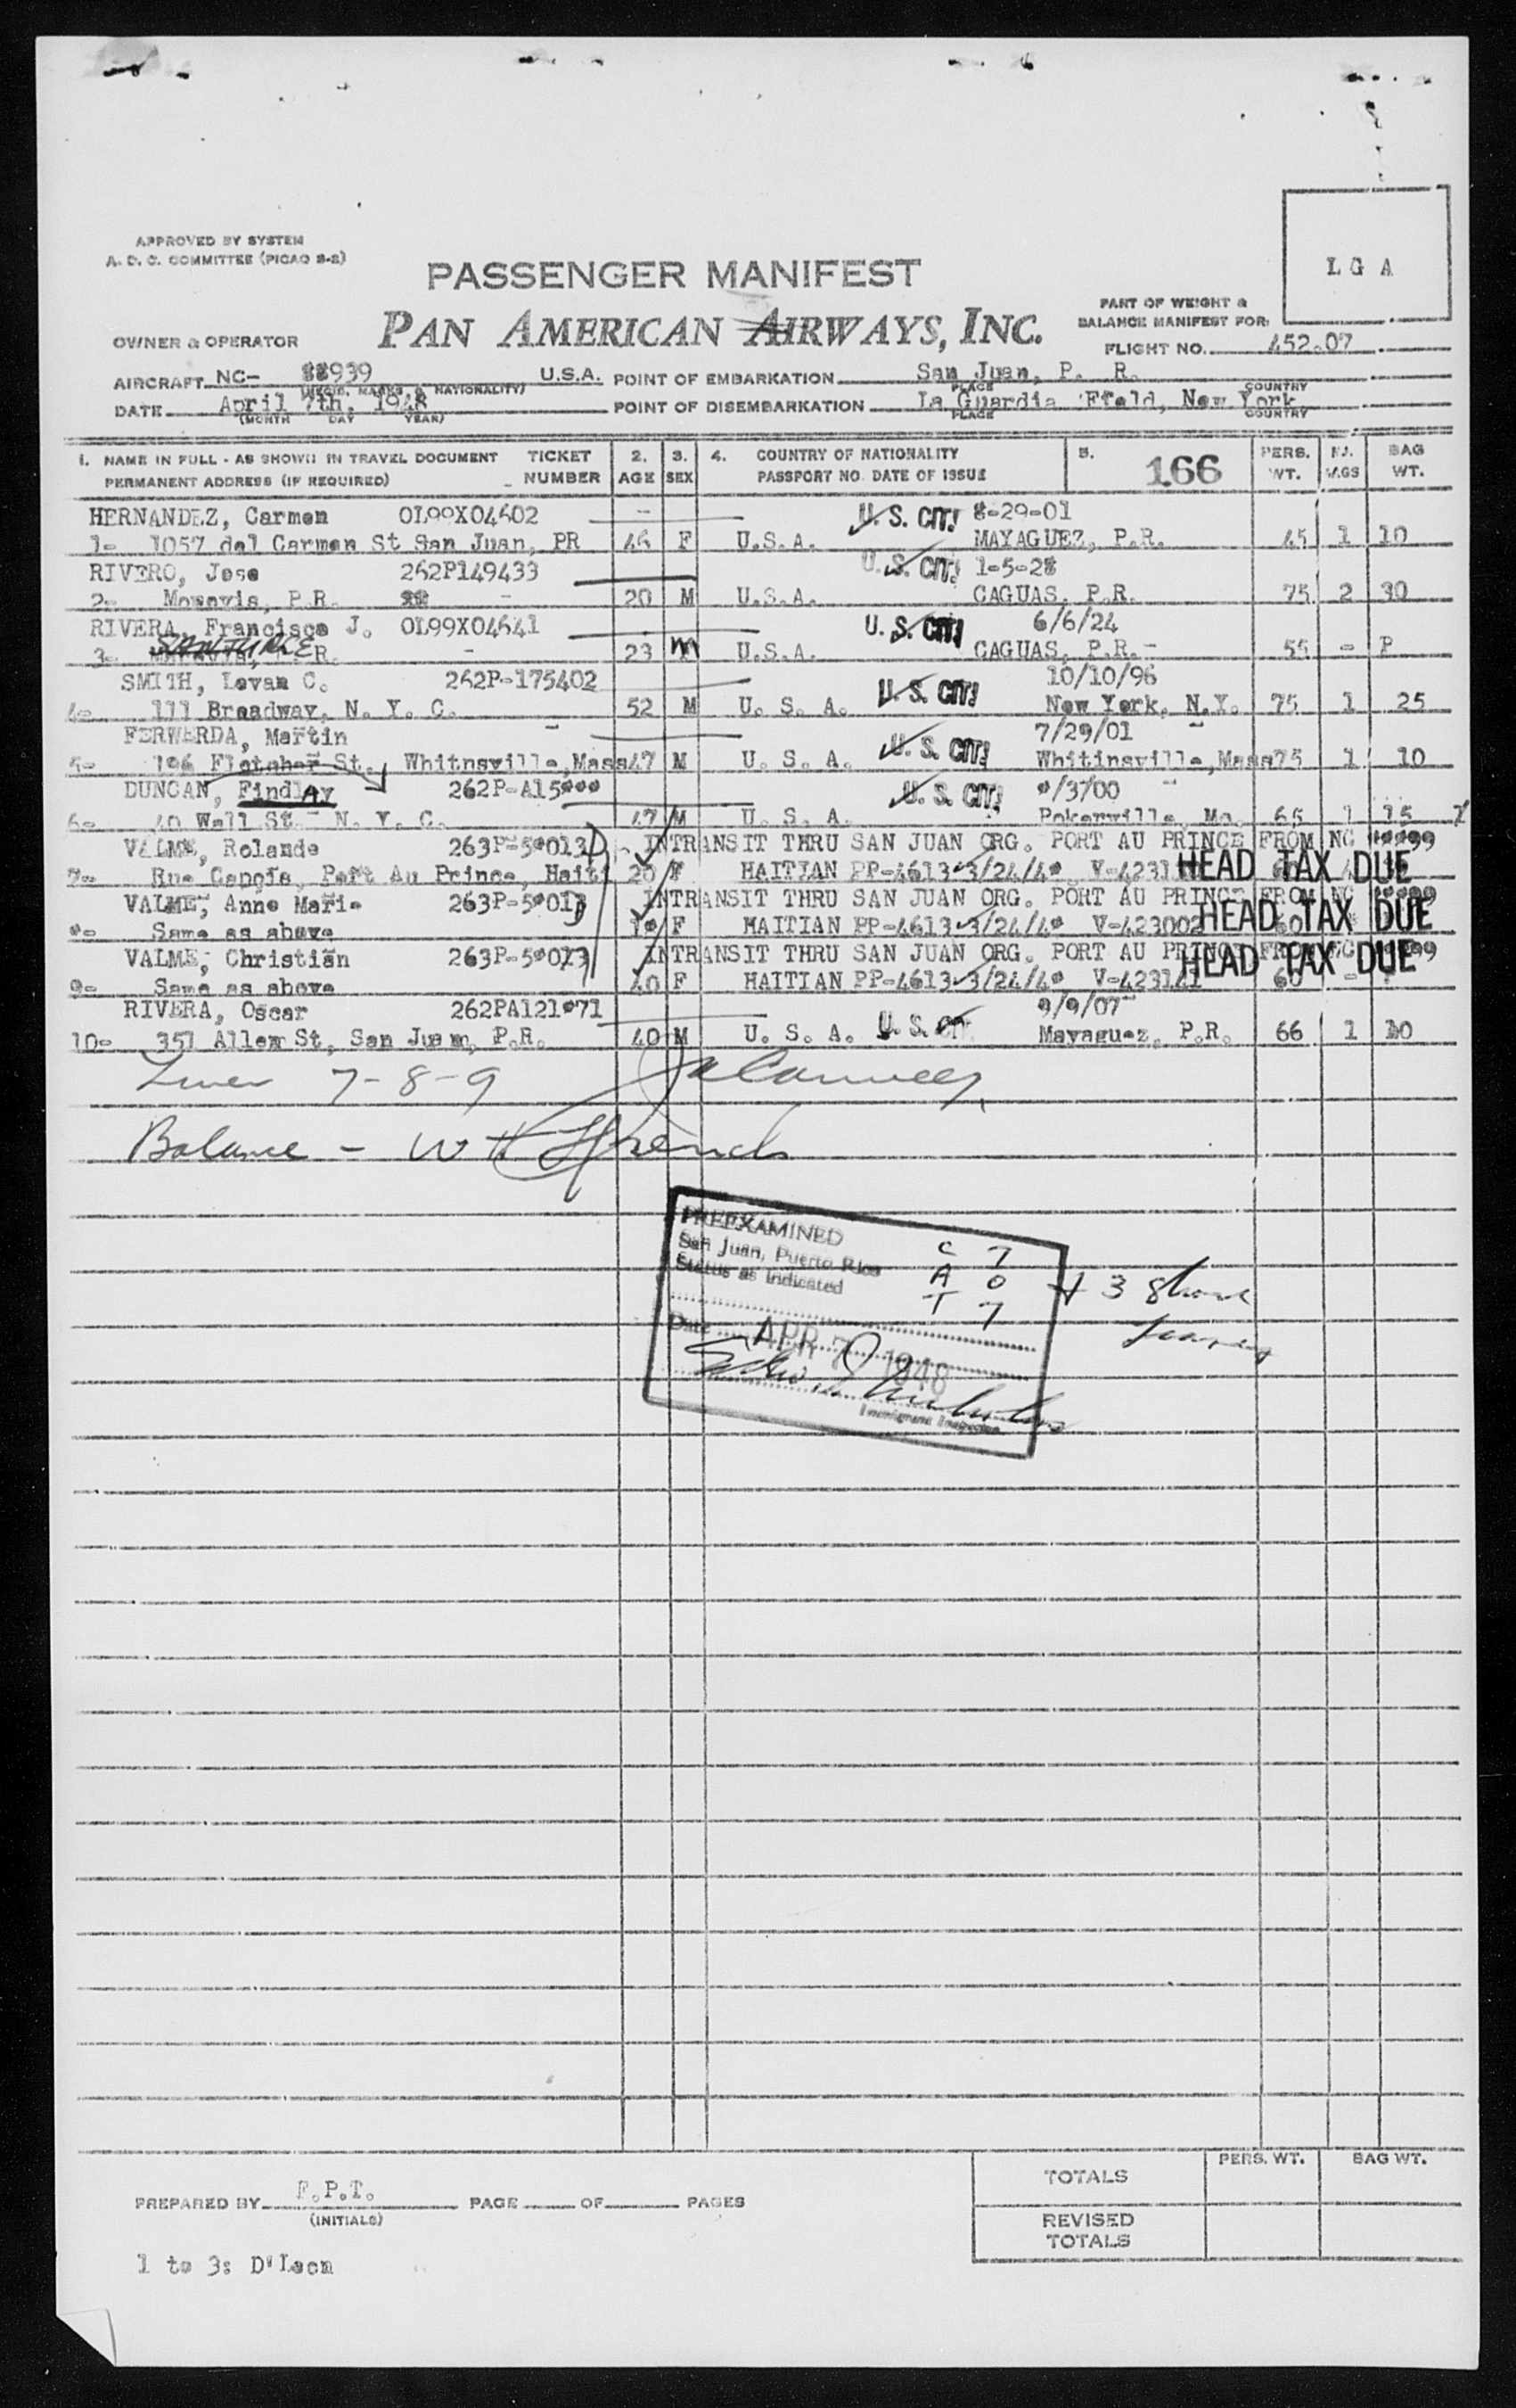 APPROVED BY SYSTEM
A. D. C. COMMITTEE (PICAO S-2)
PASSENGER MANIFEST
LGA
PAN AMERICAN AIRWAYS, INC.
PART OF WEIGHT &
BALANCE MANIFEST FOR:
OWNER & OPERATOR
FLIGHT NO. 452.07
AIRCRAFT NC- 88939 U.S.A. POINT OF EMBARKATION San Juan, P. R.
(REGIS. MARKS & NATIONALITY) PLACE COUNTRY
DATE April 7th, 1948 POINT OF DISEMBARKATION La Guardia Field, New York
(MONTH DAY YEAR) PLACE COUNTRY
1. NAME IN FULL - AS SHOWN IN TRAVEL DOCUMENT TICKET 2. 3. 4. COUNTRY OF NATIONALITY 5. 166 PERS. NO. BAG
PERMANENT ADDRESS (IF REQUIRED) NUMBER AGE SEX PASSPORT NO. DATE OF ISSUE WT. BAGS WT.
HERNANDEZ, Carmen OL99X04602 - U. S. CIT! 8-29-01
1- 1057 del Carmen St San Juan, PR 46 F U.S.A. MAYAGUEZ, P.R. 45 1 10
RIVERO, Jose 262P149433 U. S. CIT! 1-5-28
2- Morovis, P.R. - 20 M U.S.A. CAGUAS, P.R. 75 2 30
RIVERA, Francisco J. OL99X04641 U. S. CIT! 6/6/24
3- SANTURCE P.R. - 23 M U.S.A. CAGUAS, P.R.- 55 - P
SMITH, Levan C. 262P-175402 U. S. CIT! 10/10/96
4- 111 Broadway, N. Y. C. 52 M U. S. A. New York, N.Y. 75 1 25
FERWERDA, Martin - U. S. CIT! 7/29/01
5- 106 Fletcher St., Whitnsville,Mass 47 M U. S. A. Whitinsville, Mass 75 1 10
DUNCAN, Findlay 262P-A15888 U. S. CIT! 8/3/00
6- 40 Wall St. N. Y. C. 47 M U. S. A. Pokerville, Mo. 65 1 15
VALME, Rolande 263P-58013 INTRANSIT THRU SAN JUAN ORG. PORT AU PRINCE FROM NC
7- Rue Capois, Port Au Prince, Haiti 20 F HAITIAN PP-4613 3/24/48 HEAD TAX DUE
VALME, Anne Marie 263P-58013 INTRANSIT THRU SAN JUAN ORG. PORT AU PRINCE FROM NC
8- Same as above 18 F HAITIAN PP-4613 3/24/48 V-423002 HEAD TAX DUE 60
VALME, Christian 263P-58013 INTRANSIT THRU SAN JUAN ORG. PORT AU PRINCE FROM NC
9- Same as above 40 F HAITIAN PP-4613 3/24/48 V-423141 HEAD TAX DUE 60 -
RIVERA, Oscar 262PA121871 9/9/07
10- 357 Allen St, San Juan, P.R. 40 M U. S. A. U. S. CIT Mayaguez, P.R. 66 1 10
7-8-9
Balance - W H
PREEXAMINED
San Juan, Puerto Rico
Status as Indicated
C 7
A 0 + 3 Shore
T 7
Date APR 7 1948
Immigrant Inspector
TOTALS PERS. WT. BAG WT.
PREPARED BY F.P.T. PAGE OF PAGES
(INITIALS)
REVISED
TOTALS
1 to 3: D'Leon